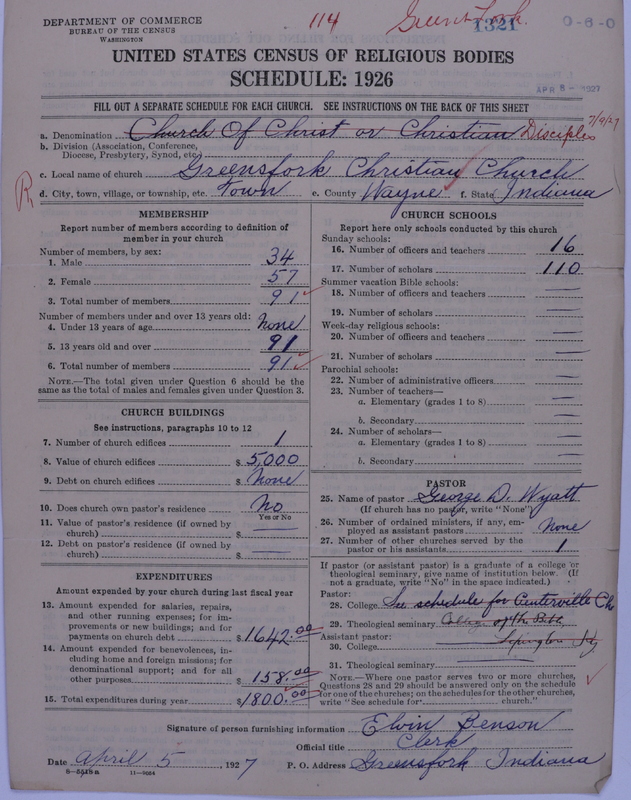 DEPARTMENT OF COMMERCE
BUREAU OF THE CENSUS
WASHINGTON
114
1321
0-6-0
UNITED STATES CENSUS OF RELIGIOUS BODIES
SCHEDULE: 1926
APR 8 - 1927
FILL OUT A SEPARATE SCHEDULE FOR EACH CHURCH. SEE INSTRUCTIONS ON THE BACK OF THIS SHEET
7/9/27
a. Denomination Church Of Christ or Christian Disciples
b. Division (Association, Conference, Diocese, Presbytery, Synod, etc.)
c. Local name of church Greensfork Christian Church
R
d. City, town, village, or township, etc. Town e. County Wayne f. State Indiana
MEMBERSHIP
Report number of members according to definition of
member in your church
Number of members, by sex:
1. Male 34
2. Female 57
3. Total number of members 91
Number of members under and over 13 years old:
4. Under 13 years of age None
5. 13 years old and over 91
6. Total number of members 91
NOTE.—The total given under Question 6 should be the
same as the total of males and females given under Question 3.
CHURCH BUILDINGS
See instructions, paragraphs 10 to 12
7. Number of church edifices 1
8. Value of church edifices $ 5,000
9. Debt on church edifices $ None
10. Does church own pastor's residence No
Yes or No
11. Value of pastor's residence (if owned by
church) $ —
12. Debt on pastor's residence (if owned by
church) $ —
EXPENDITURES
Amount expended by your church during last fiscal year
13. Amount expended for salaries, repairs,
and other running expenses; for im-
provements or new buildings; and for
payments on church debt $ 1642.00
14. Amount expended for benevolences, in-
cluding home and foreign missions; for
denominational support; and for all
other purposes $ 158.00
15. Total expenditures during year $ 1800.00
CHURCH SCHOOLS
Report here only schools conducted by this church
Sunday schools:
16. Number of officers and teachers 16
17. Number of scholars 110
Summer vacation Bible schools:
18. Number of officers and teachers —
19. Number of scholars —
Week-day religious schools:
20. Number of officers and teachers —
21. Number of scholars —
Parochial schools:
22. Number of administrative officers —
23. Number of teachers—
a. Elementary (grades 1 to 8) —
b. Secondary —
24. Number of scholars—
a. Elementary (grades 1 to 8) —
b. Secondary —
PASTOR
25. Name of pastor George D. Wyatt
(If church has no pastor, write "None")
26. Number of ordained ministers, if any, em-
ployed as assistant pastors None
27. Number of other churches served by the
pastor or his assistants 1
If pastor (or assistant pastor) is a graduate of a college or
theological seminary, give name of institution below. (If
not a graduate, write "No" in the space indicated.)
Pastor:
28. College See schedule for Centerville Ch
29. Theological seminary College of the Bible
Assistant pastor: Lexington Ky
30. College
31. Theological seminary —
NOTE.—Where one pastor serves two or more churches,
Questions 28 and 29 should be answered only on the schedule
for one of the churches; on the schedules for the other churches,
write "See schedule for church."
Signature of person furnishing information Elvin Benson
Official title Clerk
Date April 5, 1927 P. O. Address Greensfork Indiana
11—8654